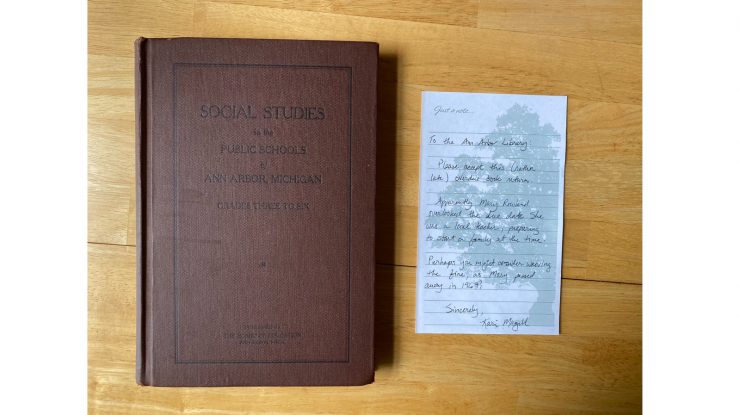 SOCIAL STUDIES
in the
PUBLIC SCHOOLS
of
ANN ARBOR, MICHIGAN
GRADES THREE TO SIX
THE BOARD OF EDUCATION
Just a note...
To the Ann Arbor Library
Please accept this (rather
late) overdue book return.
Apparently Mary Rowland
overlooked the due date. She
was a local teacher, preparing
to start a family at the time.
Perhaps you might consider waiving
the fine, as Mary passed
away in 1969?
Sincerely,